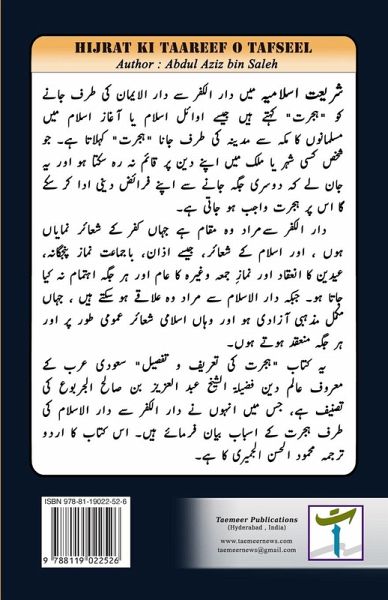 HIJRAT KI TAAREEF O TAFSEEL
Author : Abdul Aziz bin Saleh
شریعت اسلامیہ میں دار الکفر سے دار الایمان کی طرف جانے
کو "ہجرت" کہتے ہیں جیسے اوائل اسلام یا آغاز اسلام میں
مسلمانوں کا مکہ سے مدینہ کی طرف جانا "ہجرت" کہلاتا ہے۔ جو
شخص کسی شہر یا ملک میں اپنے دین پر قائم نہ رہ سکتا ہو اور یہ
جان لے کہ دوسری جگہ جانے سے اپنے فرائض دینی ادا کر سکے
گا اس پر ہجرت واجب ہو جاتی ہے۔
دار الکفر سے مراد وہ مقام ہے جہاں کفر کے شعائر نمایاں
ہوں ، اور اسلام کے شعائر، جیسے اذان، باجماعت نماز پنجگانہ،
عیدین کا انعقاد اور نماز جمعہ وغیرہ کا عام اور ہر جگہ اہتمام نہ کیا
جاتا ہو۔ جبکہ دار الاسلام سے مراد وہ علاقے ہو سکتے ہیں ، جہاں
مکمل مذہبی آزادی ہو اور وہاں اسلامی شعائر عمومی طور پر اور
ہر جگہ منعقد ہوتے ہوں۔
یہ کتاب "ہجرت کی تعریف و تفصیل" سعودی عرب کے
معروف عالم دین فضیلۃ الشیخ عبد العزیز بن صالح الجربوع کی
تصنیف ہے، جس میں انہوں نے دار الکفر سے دار الاسلام کی
طرف ہجرت کے اسباب بیان فرمائے ہیں۔ اس کتاب کا اردو
ترجمہ محمود الحسن الجمیری کا ہے۔
ISBN 978-81-19022-52-6
9 788119 022526
Taemeer Publications
(Hyderabad , India)
www.taemeernews.com
taemeernews@gmail.com